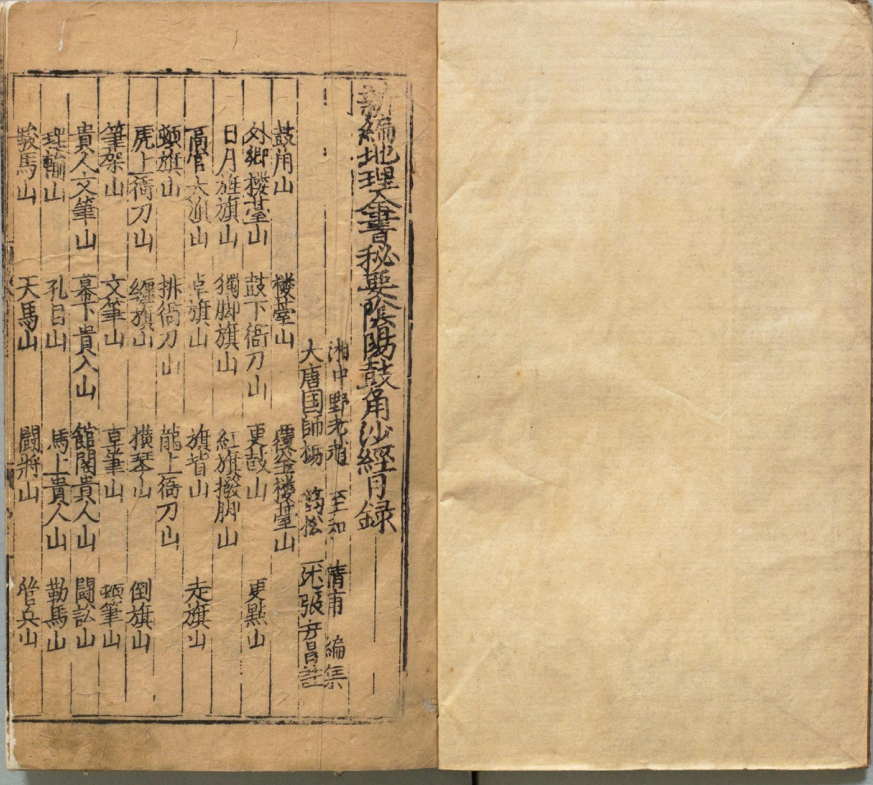 新編地理全書秘要陰陽鼓角沙經目録
湘中野老趙 至和 清甫 編集
大唐国師楊 筠松 述 張 昌註
鼓角山 楼臺山 覆釜楼臺山
外鄉楼臺山 鼓下衙刀山 更鼓山 更點山
日月旌旗山 獨脚旗山 紅旗撥脚山
高官大旗山 卓旗山 旗皆山 走旗山
頓旗山 排衙刀山 龍上衙刀山
虎上衙刀山 纒旗山 横琴山 倒旗山
筆架山 文筆山 卓筆山 頓筆山
貴人文筆山 幕下貴人山 館閣貴人山 闘訟山
山 孔目山 馬上貴人山 勒馬山
鞍馬山 天馬山 闘將山 管兵山